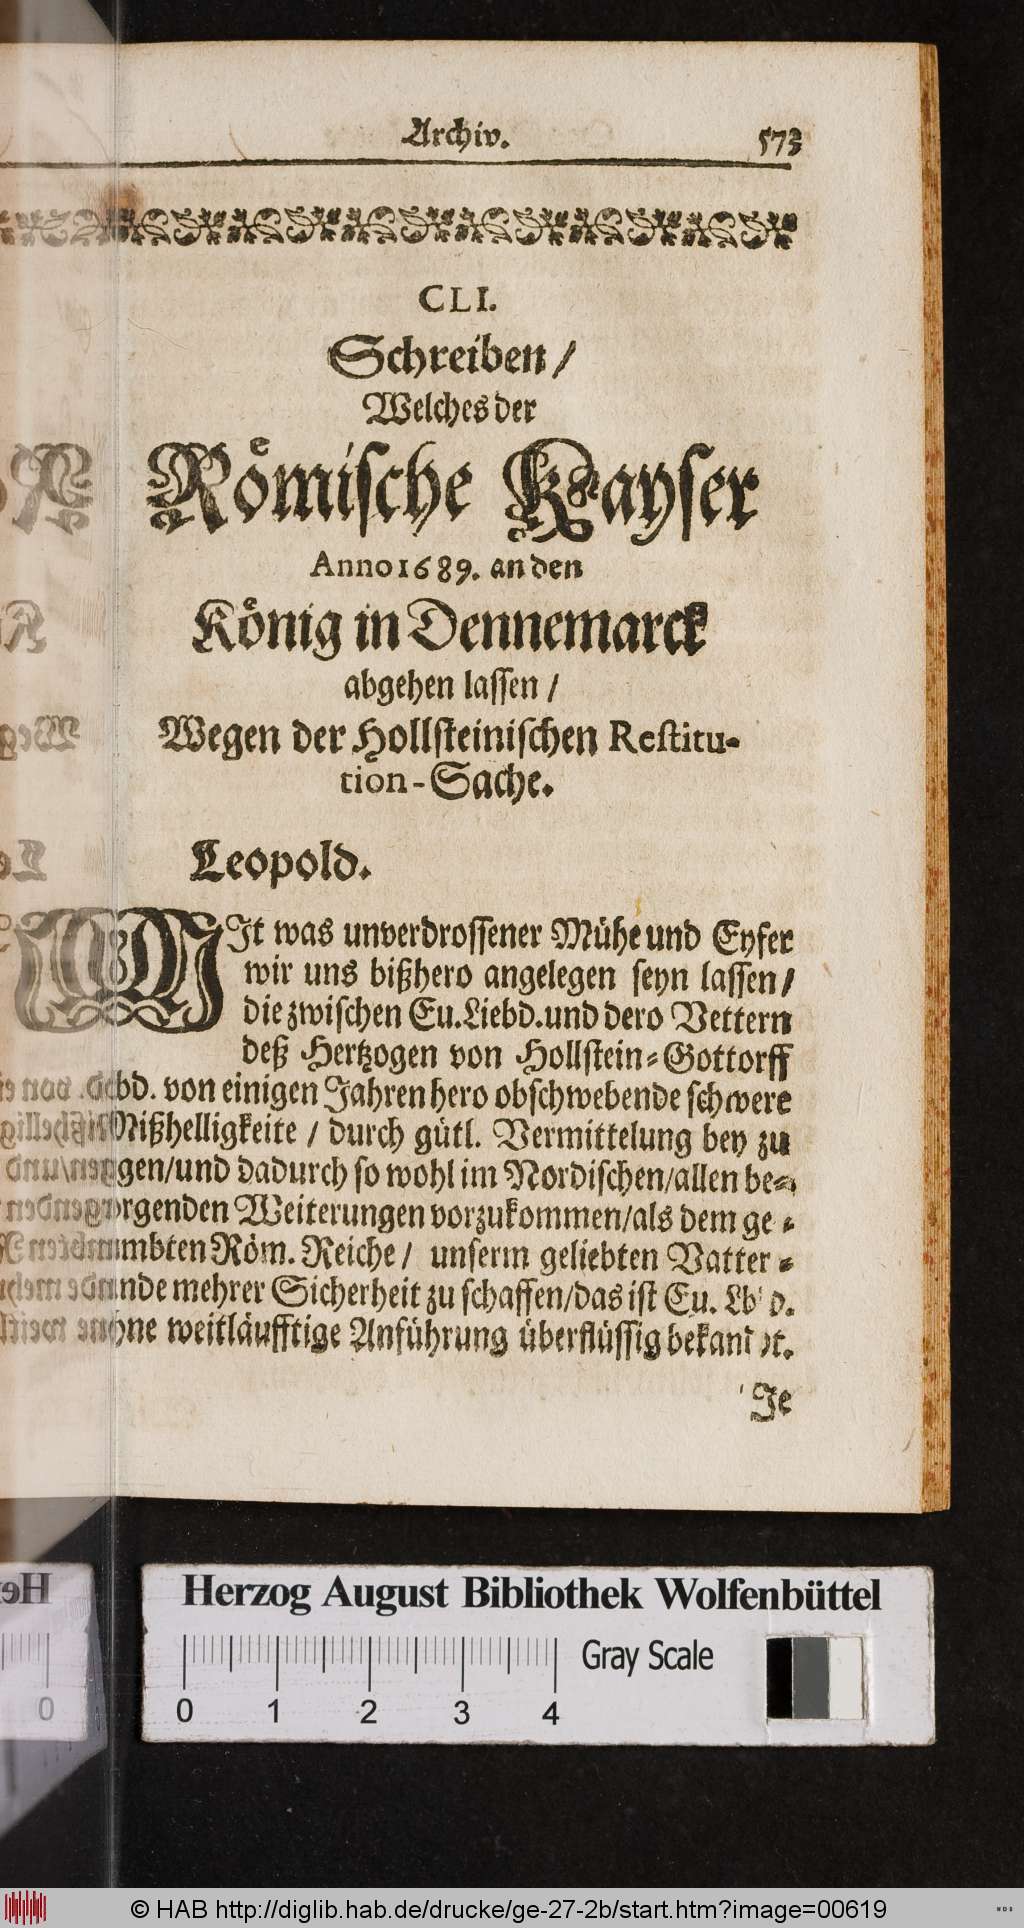 Archiv.
573
CLI.
Schreiben /
Welches der
Roͤmische Kayser
Anno 1689. an den
Koͤnig in Dennemarck
abgehen lassen /
Wegen der Hollsteinischen Restitu-
tion-Sache.
Leopold.
MIt was unverdrossener Mühe und Eyfer
wir uns bißhero angelegen seyn lassen /
die zwischen Eu. Liebd. und dero Vettern
deß Hertzogen von Hollstein-Gottorff
bd. von einigen Jahren hero obschwebende schwere
Mißhelligkeite / durch gütl. Vermittelung bey zu
gen/und dadurch so wohl im Nordischen/allen be-
rgenden Weiterungen vorzukommen/als dem ge-
mbten Röm. Reiche / unserm geliebten Vatter-
nde mehrer Sicherheit zu schaffen/das ist Eu. Lbd.
hne weitläufftige Anführung überflüssig bekandt.
Je
Herzog August Bibliothek Wolfenbüttel
0 1 2 3 4
Gray Scale
© HAB http://diglib.hab.de/drucke/ge-27-2b/start.htm?image=00619